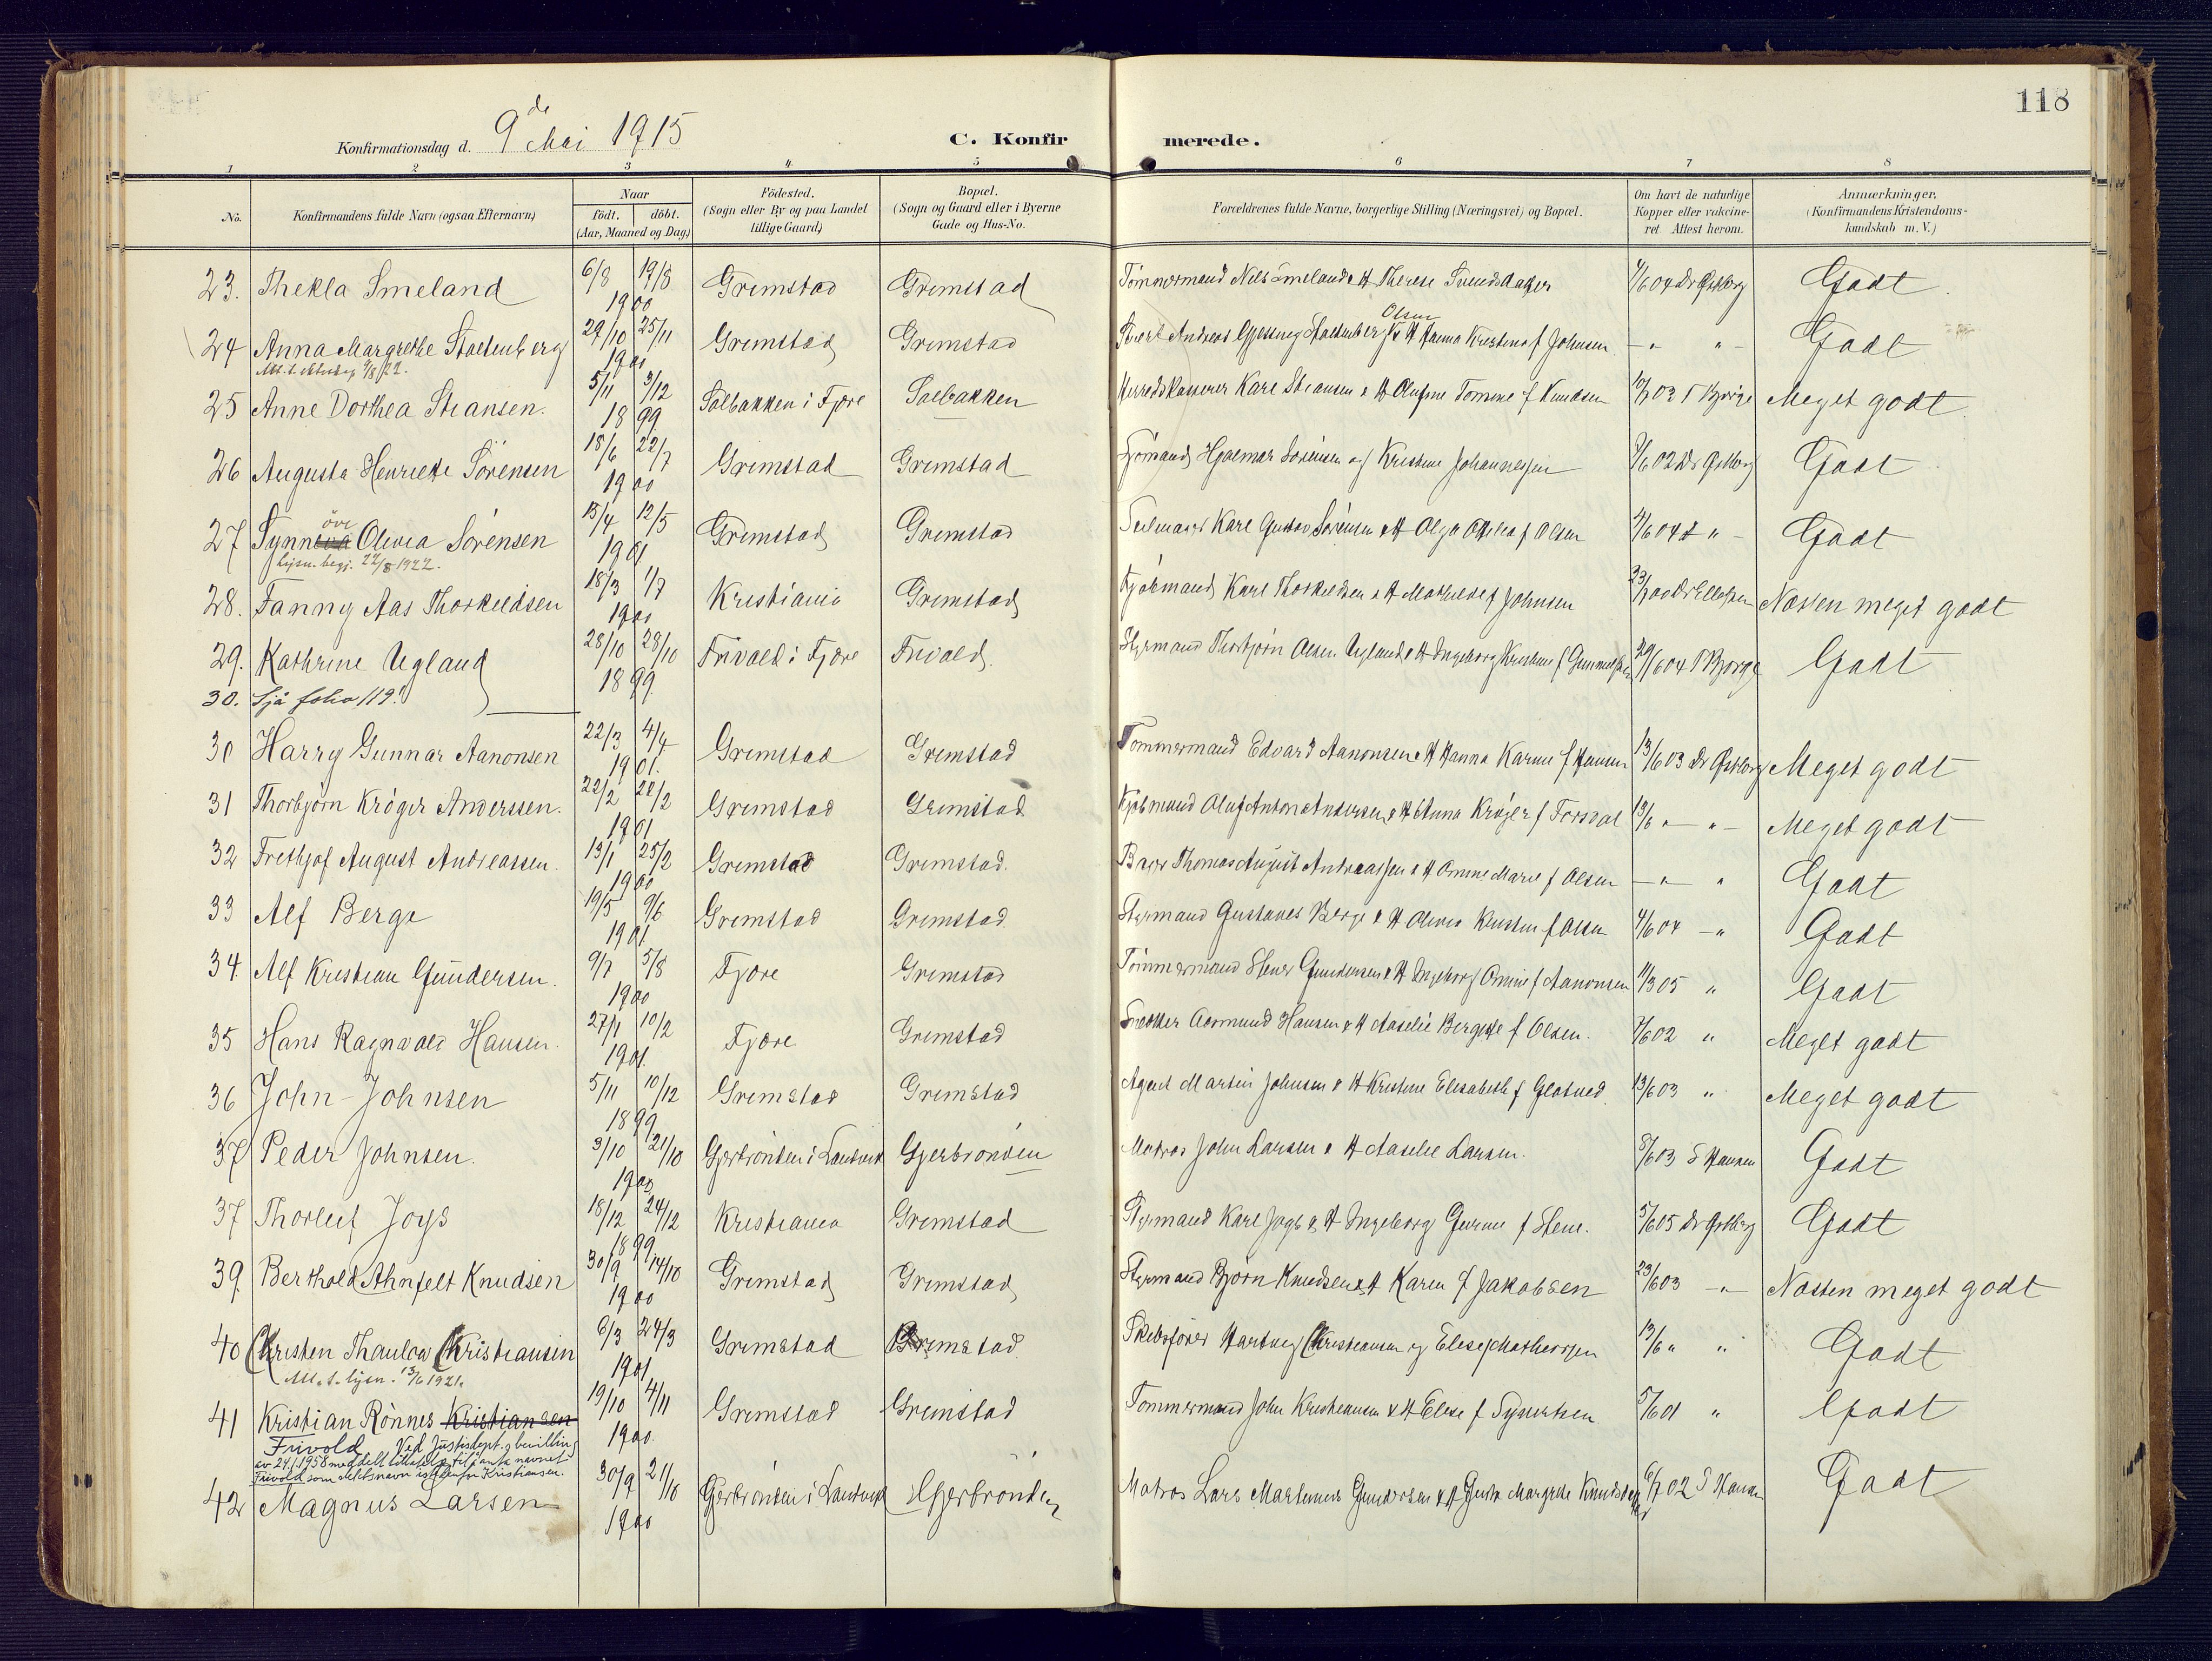 118
Konfirmationsdag d. 9de Mai 1915 C. Konfir merede.
1 2 3 4 5 6 7 8
No. Konfirmandens fulde Navn (ogsaa Efternavn) Naar födt. döbt. (Aar, Maaned og Dag) Födested. (Sogn eller By og paa Landet tillige Gaard) Bopæl. (Sogn og Gaard eller i Byerne Gade og Hus-No. Forældrenes fulde Navne, borgerlige Stilling (Næringsvei) og Bopæl. Om havt de naturlige Kopper eller vakcineret Attest herom. Anmærkninger. (Konfirmandens Kristendomskundskab m. V.)
23. Thekla Smeland 6/8 19/8 1900 Grimstad Grimstad Tömmermand Nils Smeland & H Therese Svendsdatter 7/6 04 Dr Östberg Godt
24 Anna Margrethe Stoltenberg 29/10 25/11 1900 Grimstad Grimstad Andreas Stoltenberg Olsen & H Hanna Kristine f Johnsen – " " – Godt
25 Anne Dorthea Stiansen. 5/11 3/12 1899 Solbakken i Fjære Solbakken Herredskasserer Karl Stiansen & H Olufine Tomine f Knudsen 03 Meget godt
26 Augusta Henriette Sörensen 18/6 22/7 1900 Grimstad Grimstad Sjömand Hjalmar Sörensen og Kristine Johannessen 7/6 02 Dr Östberg Godt
27 Synneva öve Olivia Sörensen 13/4 12/5 1901 Grimstad Grimstad Seilmager Karl Gustav Sörensen & H Olga Otilia f Olsen 4/6 04 " – Godt
Lysn. begj. 22/8 1922.
28. Fanny Aas Thorkildsen 18/3 1/7 1900 Kristiania Grimstad Kjöbmand Karl Thorkildsen & H Mathilde f Johnsen Næsten meget godt
29. Kathrine Ugland 28/10 28/10 1899 Frivold i Fjære Frivold. Styrmand Thorbjörn Olsen Ugland & H Ingeborg Kristine f Gunnufsen 04 Godt
30. Sjå folio 119!
30 Harry Gunnar Aanonsen 22/3 4/4 1901. Grimstad Grimstad Tömmermand Edvard Aanonsen & H Hanna Karine f Hansen 13/6 03 Dr Östberg Meget godt
31 Thorbjörn Kröger Anderssen. 22/2 1901 Grimstad Grimstad Kjöbmand Oluf Anton Anderssen & H Anna Kröger f Forsdal 13/6 " – " – Meget godt
32 Frethjof August Andreassen. 13/1 25/2 1900 Grimstad Grimstad. Bager Thomas August Andreassen & H Omine Marie f Olsen – " – " Godt
33 Alf Berge 19/5 9/6 1901. Grimstad Grimstad. Styrmand Gustaves Berge & H Olivia Kristine f Olsen 4/6 04 – " Godt
34 Alf Kristian Gundersen. 9/7 5/8 1900 Fjære Grimstad Tömmermand Gundersen & H Ingeborg Omine f Aanonsen 11/3 05 " Godt
35 Hans Ragnvald Hansen. 27/1 10/2 1901. Fjære Grimstad Snedker Aasmund Hansen & H Aaselie Bergitte f Olsen. 7/6 02 " Meget godt
36 John Johnsen 5/11 10/12 1899 Grimstad Grimstad Agent Martin Johnsen & H Kristine Elisabeth f 13/6 03 " Meget godt
37 Peder Johnsen. 3/10 21/10 1900 Gjerbrönden i Landvik Gjerbrönden Matros John Larsen & H Aaselie Larsen. 8/6 03 S Hansen Godt
37 Thorleif Joys 18/12 24/12 1899 Kristiania Grimstad Styrmand Karl Joys & H Ingeborg f 5/6 05 Dr Östberg Godt
39. Berthold Ahnfelt Knudsen 30/9 14/10 1900 Grimstad Grimstad Styrmand Björn Knudsen & H Karen f Jakobsen 23/6 03 – " – Næsten meget godt
40 Kristen Thaulow Kristiansen 6/3 24/3 1901 Grimstad Grimstad Skibsförer Hartvig Kristiansen og Elise Mathiassen 13/6 " " Godt
Att. t. lysn. 13/6 1921.
41 Kristian Rönnes Kristiansen 19/10 4/11 1900. Grimstad Grimstad Tömmermand John Kristiansen & H Elise f Syvertsen 5/6 01 " Godt
Frivold Ved Justisdept.s bevilling
av 24/1 1958 meddelt tillatelse til å anta navnet
Frivold som slektsnavn istedenfor Kristiansen.
42 Magnus Larsen 30/9 21/10 1900 Gjerbrönden i Landvik Gjerbrönden Matros Lars Martinius Gundersen & H Margrethe Knudsdatter 6/7 02 S Hansen Godt